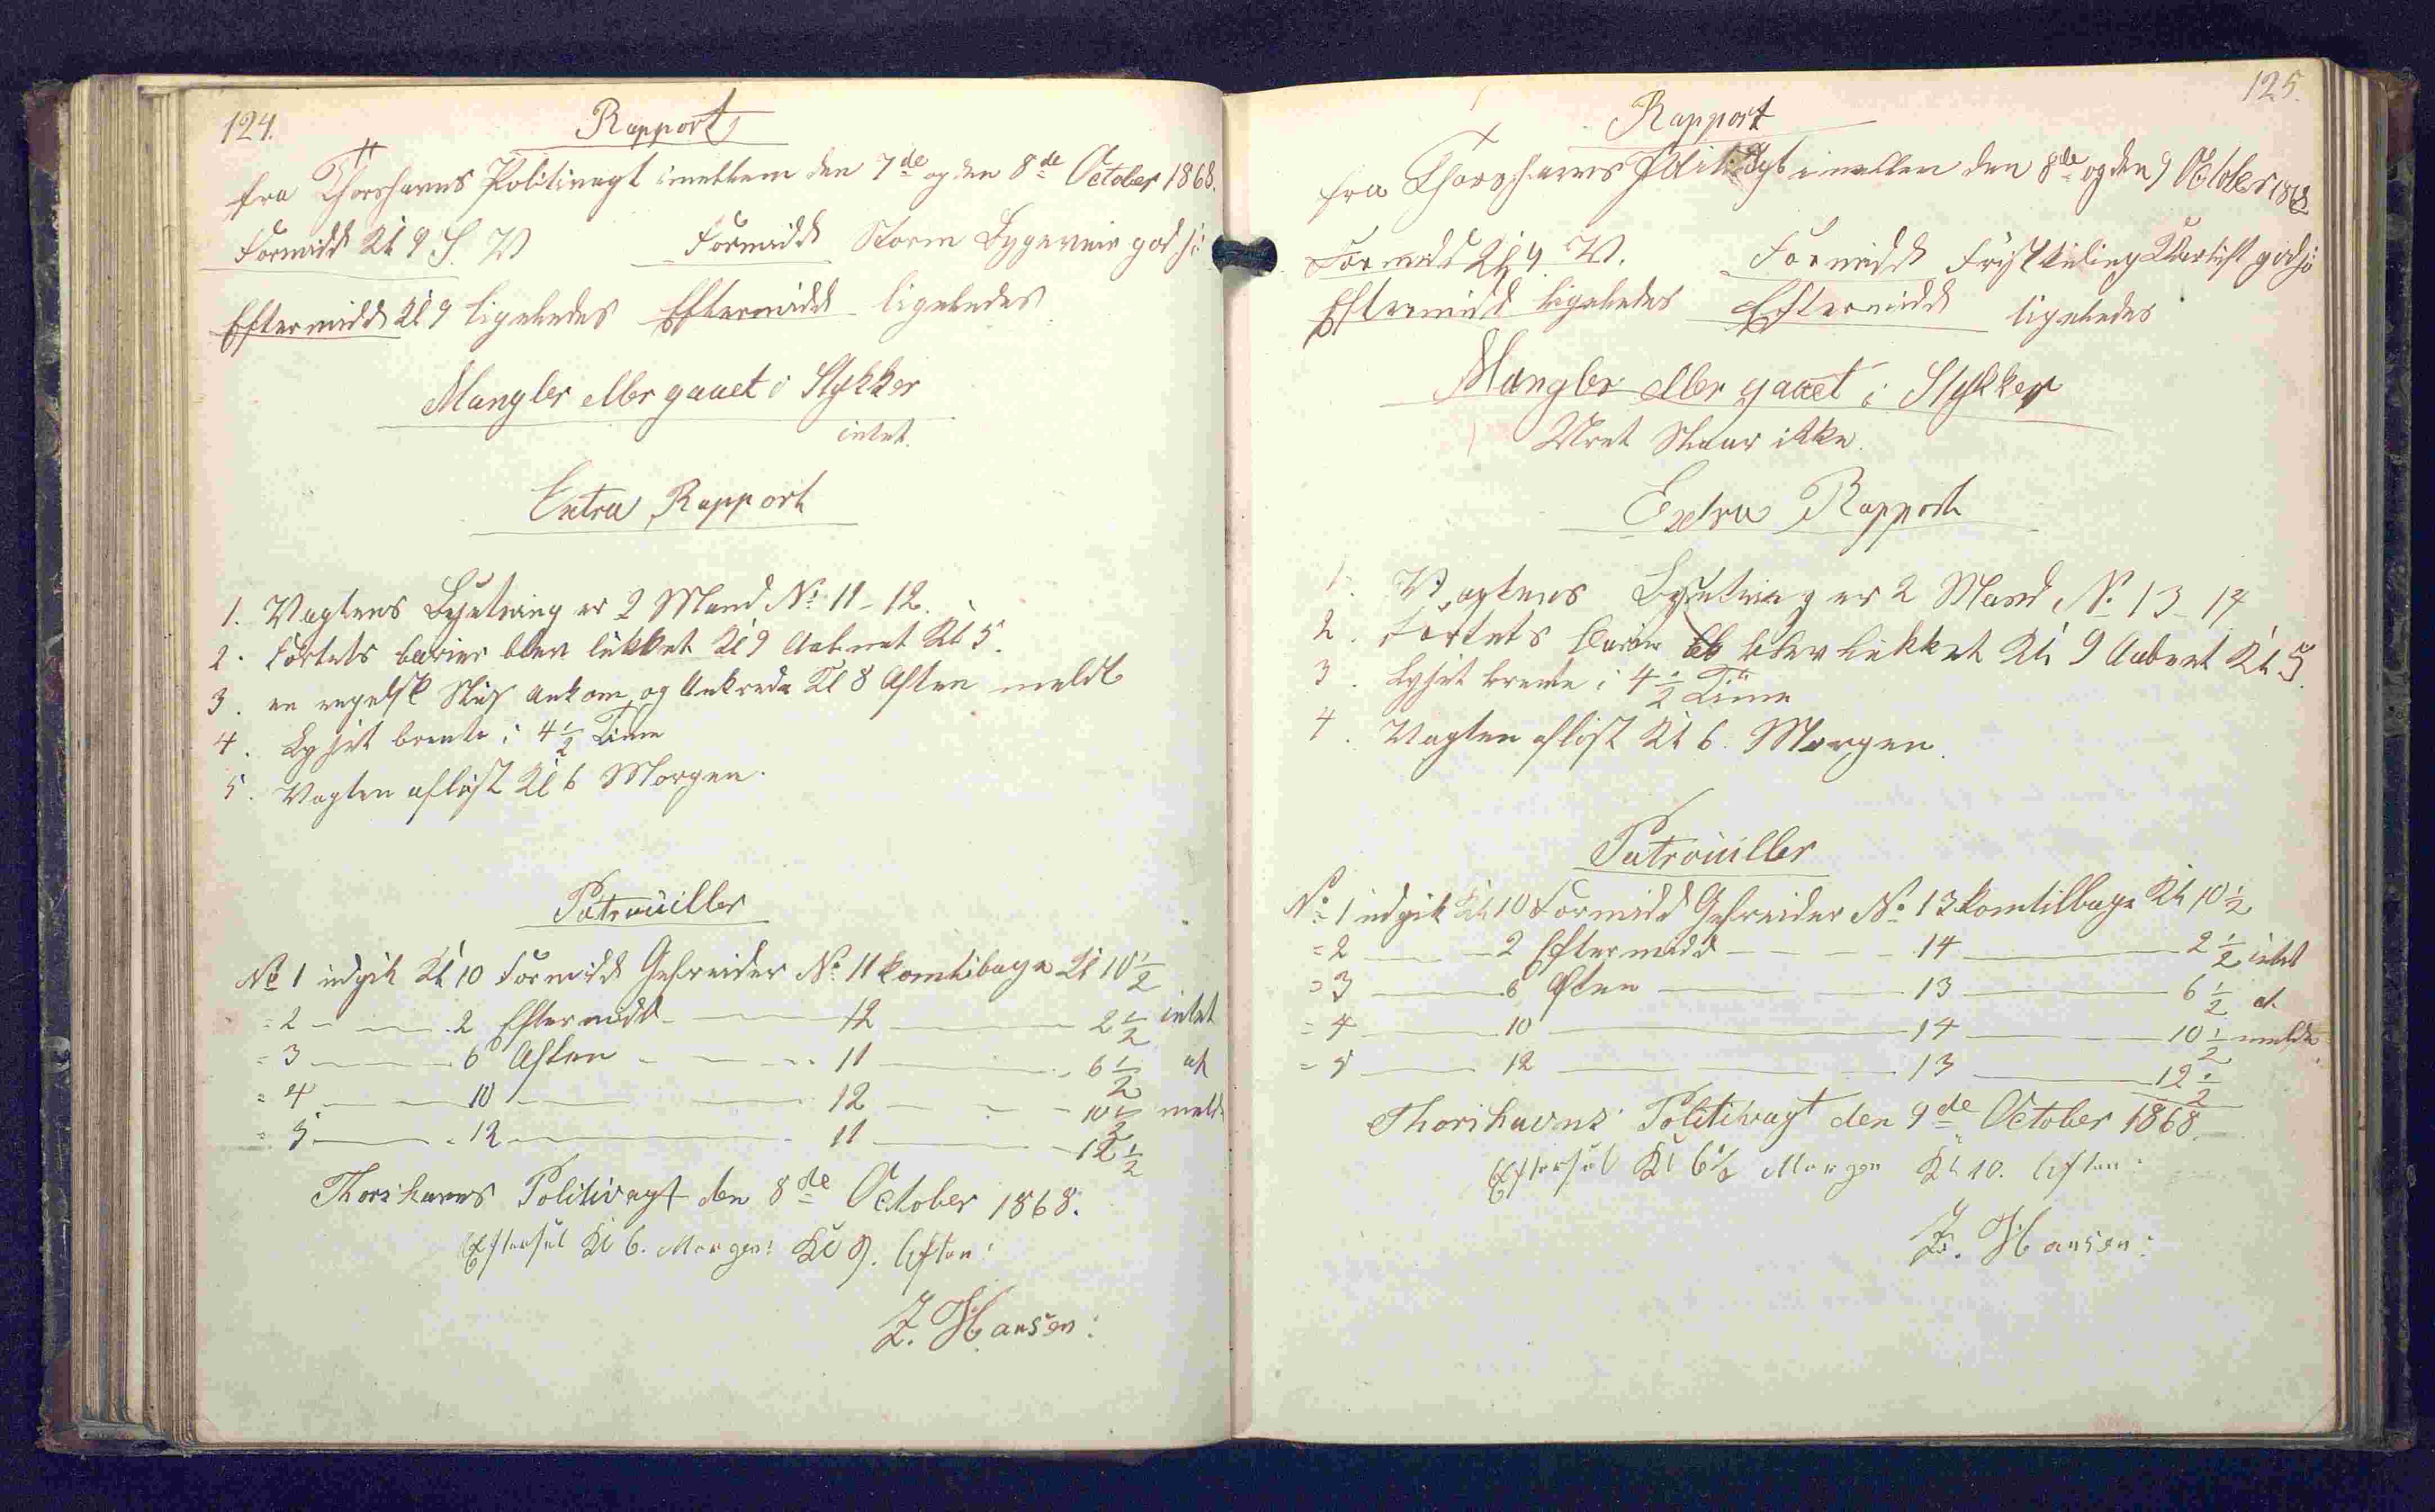 124.
Rapport
fra Thorshavns Politivagt imellem den 7de og den 8de October 1868.
Formidd Kl 9 S. V Formidd Storm Bygeveir god sö
Eftermidd Kl 9 ligeledes Eftermidd ligeledes
Mangler eller gaaet i Stykker
intet.
Extra Rapport
1. Vagtens Besetning er 2 Mand No 11-12.
2. Fortets barier blev lukket Kl 9 Aabnet Kl 5.
3. en engelsk Skip ankom og Ankrede Kl 8 Aften meldt
4. Lyset brente i 4 1/2 Time
5. Vagten aflöst Kl 6 Morgen.
Patrouiller
No 1 udgik Kl 10 Formidd Gefreider No 11 komtibage Kl 10 1/2
= 2 — — 2 Eftermidd — 12 — 2 1/2 intet
= 3 — 6 Aften — 11 — 6 1/2 at
= 4 — 10 — 12 — 10 1/2 melde
= 5 — 12 — 11 — 12 1/2
Thorshavns Politivagt den 8de October 1868.
Efterset Kl 6. Morgen: Kl 9. Aften:
Z. Hansen:
125.
Rapport
fra Thorshavns Politivagt imellem den 8de og den 9 October 1868
Formidd Kl 9 V. Formidd Frisk kuling Klarluft god sö
Eftermidd ligeledes Eftermidd ligeledes
Mangler eller gaaet i Stykker
Uret Slaar ikke.
Extra Rapport
1. Vagtens Besetning er 2 Mand No 13-14
2. Fortets Barier blev lukket Kl 9 Aabnet Kl 5.
3. Lyset brente i 4 1/2 Time
4. Vagten aflöst Kl 6. Morgen.
Patrouiller
No 1 udgik Kl 10 Formidd Gefreider No 13 komtilbage Kl 10 1/2
= 2 — 2 Eftermidd — 14 — 2 1/2 intet
= 3 — 6 Aften — 13 — 6 1/2 at
= 4 — 10 — 14 — 10 1/2 melde
= 5 — 12 — 13 — 12 1/2
Thorshavns Politivagt den 9de October 1868.
Eftersét Kl 6 1/2 Morgen Kl 10. Aften:
Z. Hansen: